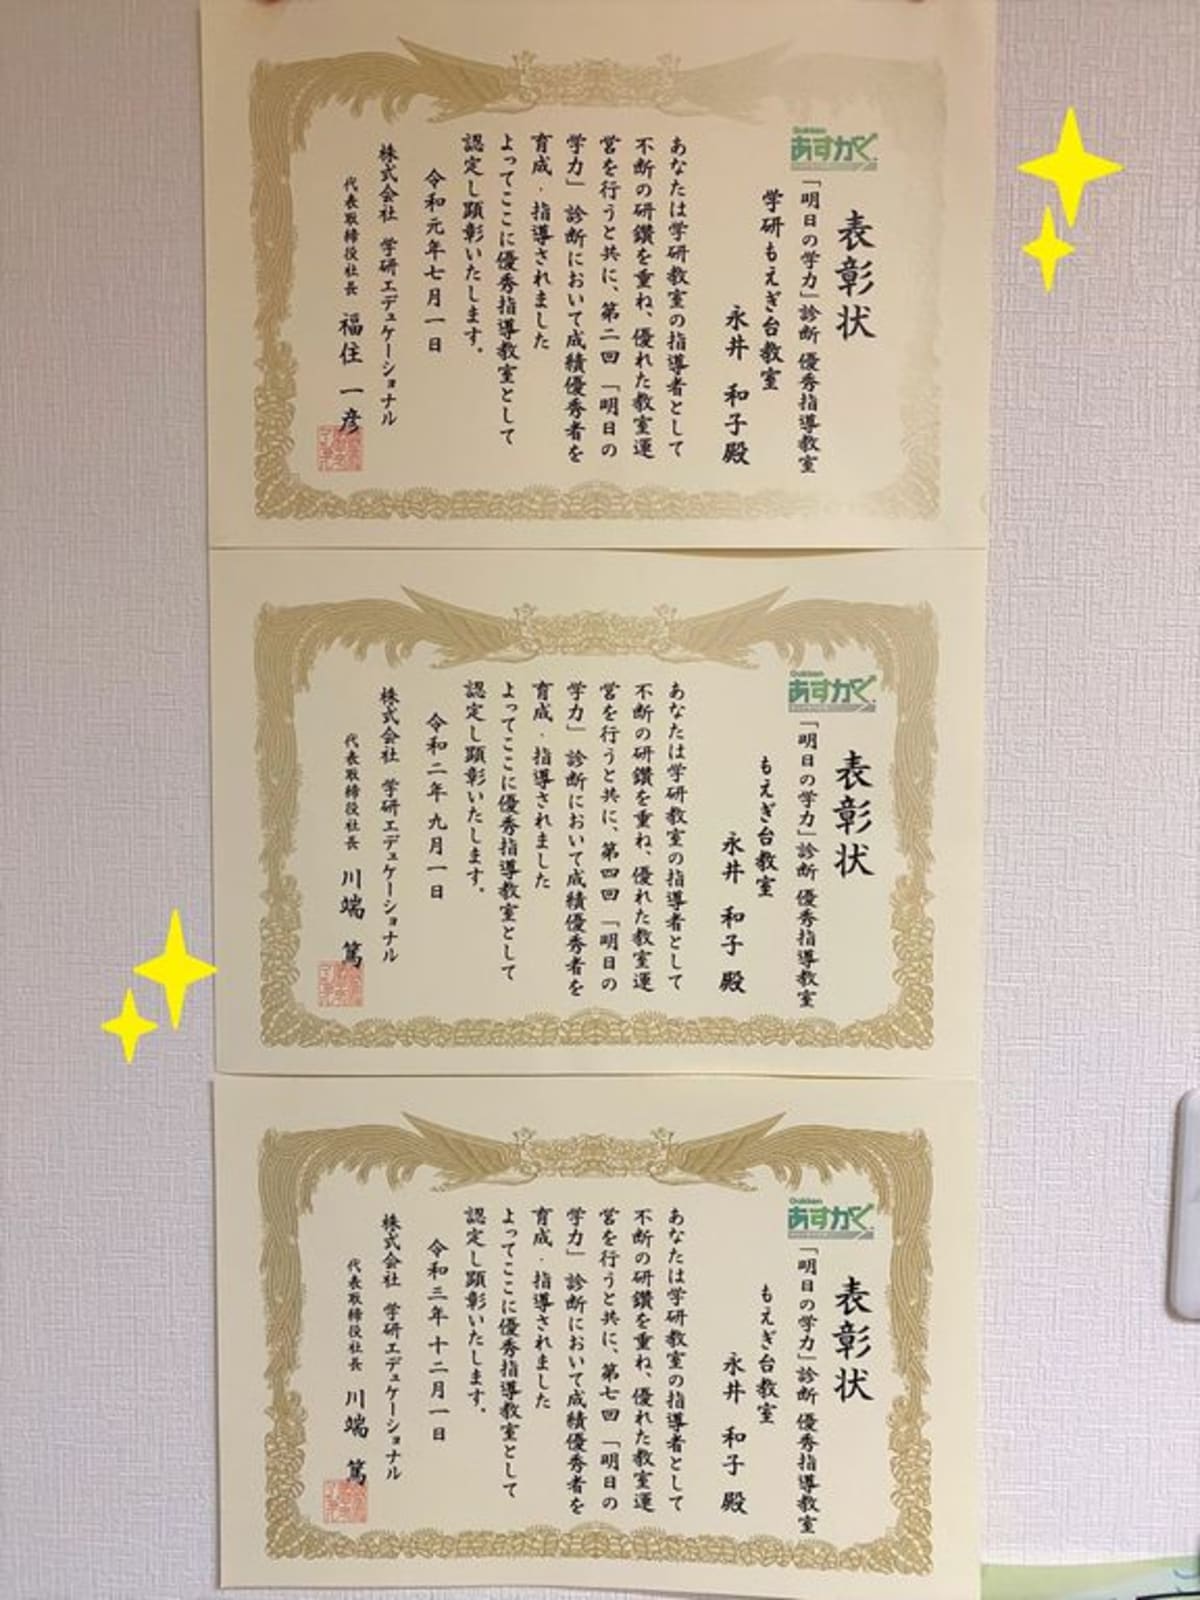 Gakken
あすがく
表彰状
「明日の学力」診断 優秀指導教室
学研もえぎ台教室
永井 和子 殿
あなたは学研教室の指導者として
不断の研鑽を重ね、優れた教室運
営を行うと共に、第二回「明日の
学力」診断において成績優秀者を
育成・指導されました
よってここに優秀指導教室として
認定し顕彰いたします。
令和元年七月一日
株式会社 学研エデュケーショナル
代表取締役社長 福住 一彦
Gakken
あすがく
表彰状
「明日の学力」診断 優秀指導教室
もえぎ台教室
永井 和子 殿
あなたは学研教室の指導者として
不断の研鑽を重ね、優れた教室運
営を行うと共に、第四回「明日の
学力」診断において成績優秀者を
育成・指導されました
よってここに優秀指導教室として
認定し顕彰いたします。
令和二年九月一日
株式会社 学研エデュケーショナル
代表取締役社長 川端 篤
Gakken
あすがく
表彰状
「明日の学力」診断 優秀指導教室
もえぎ台教室
永井 和子 殿
あなたは学研教室の指導者として
不断の研鑽を重ね、優れた教室運
営を行うと共に、第七回「明日の
学力」診断において成績優秀者を
育成・指導されました
よってここに優秀指導教室として
認定し顕彰いたします。
令和三年十二月一日
株式会社 学研エデュケーショナル
代表取締役社長 川端 篤